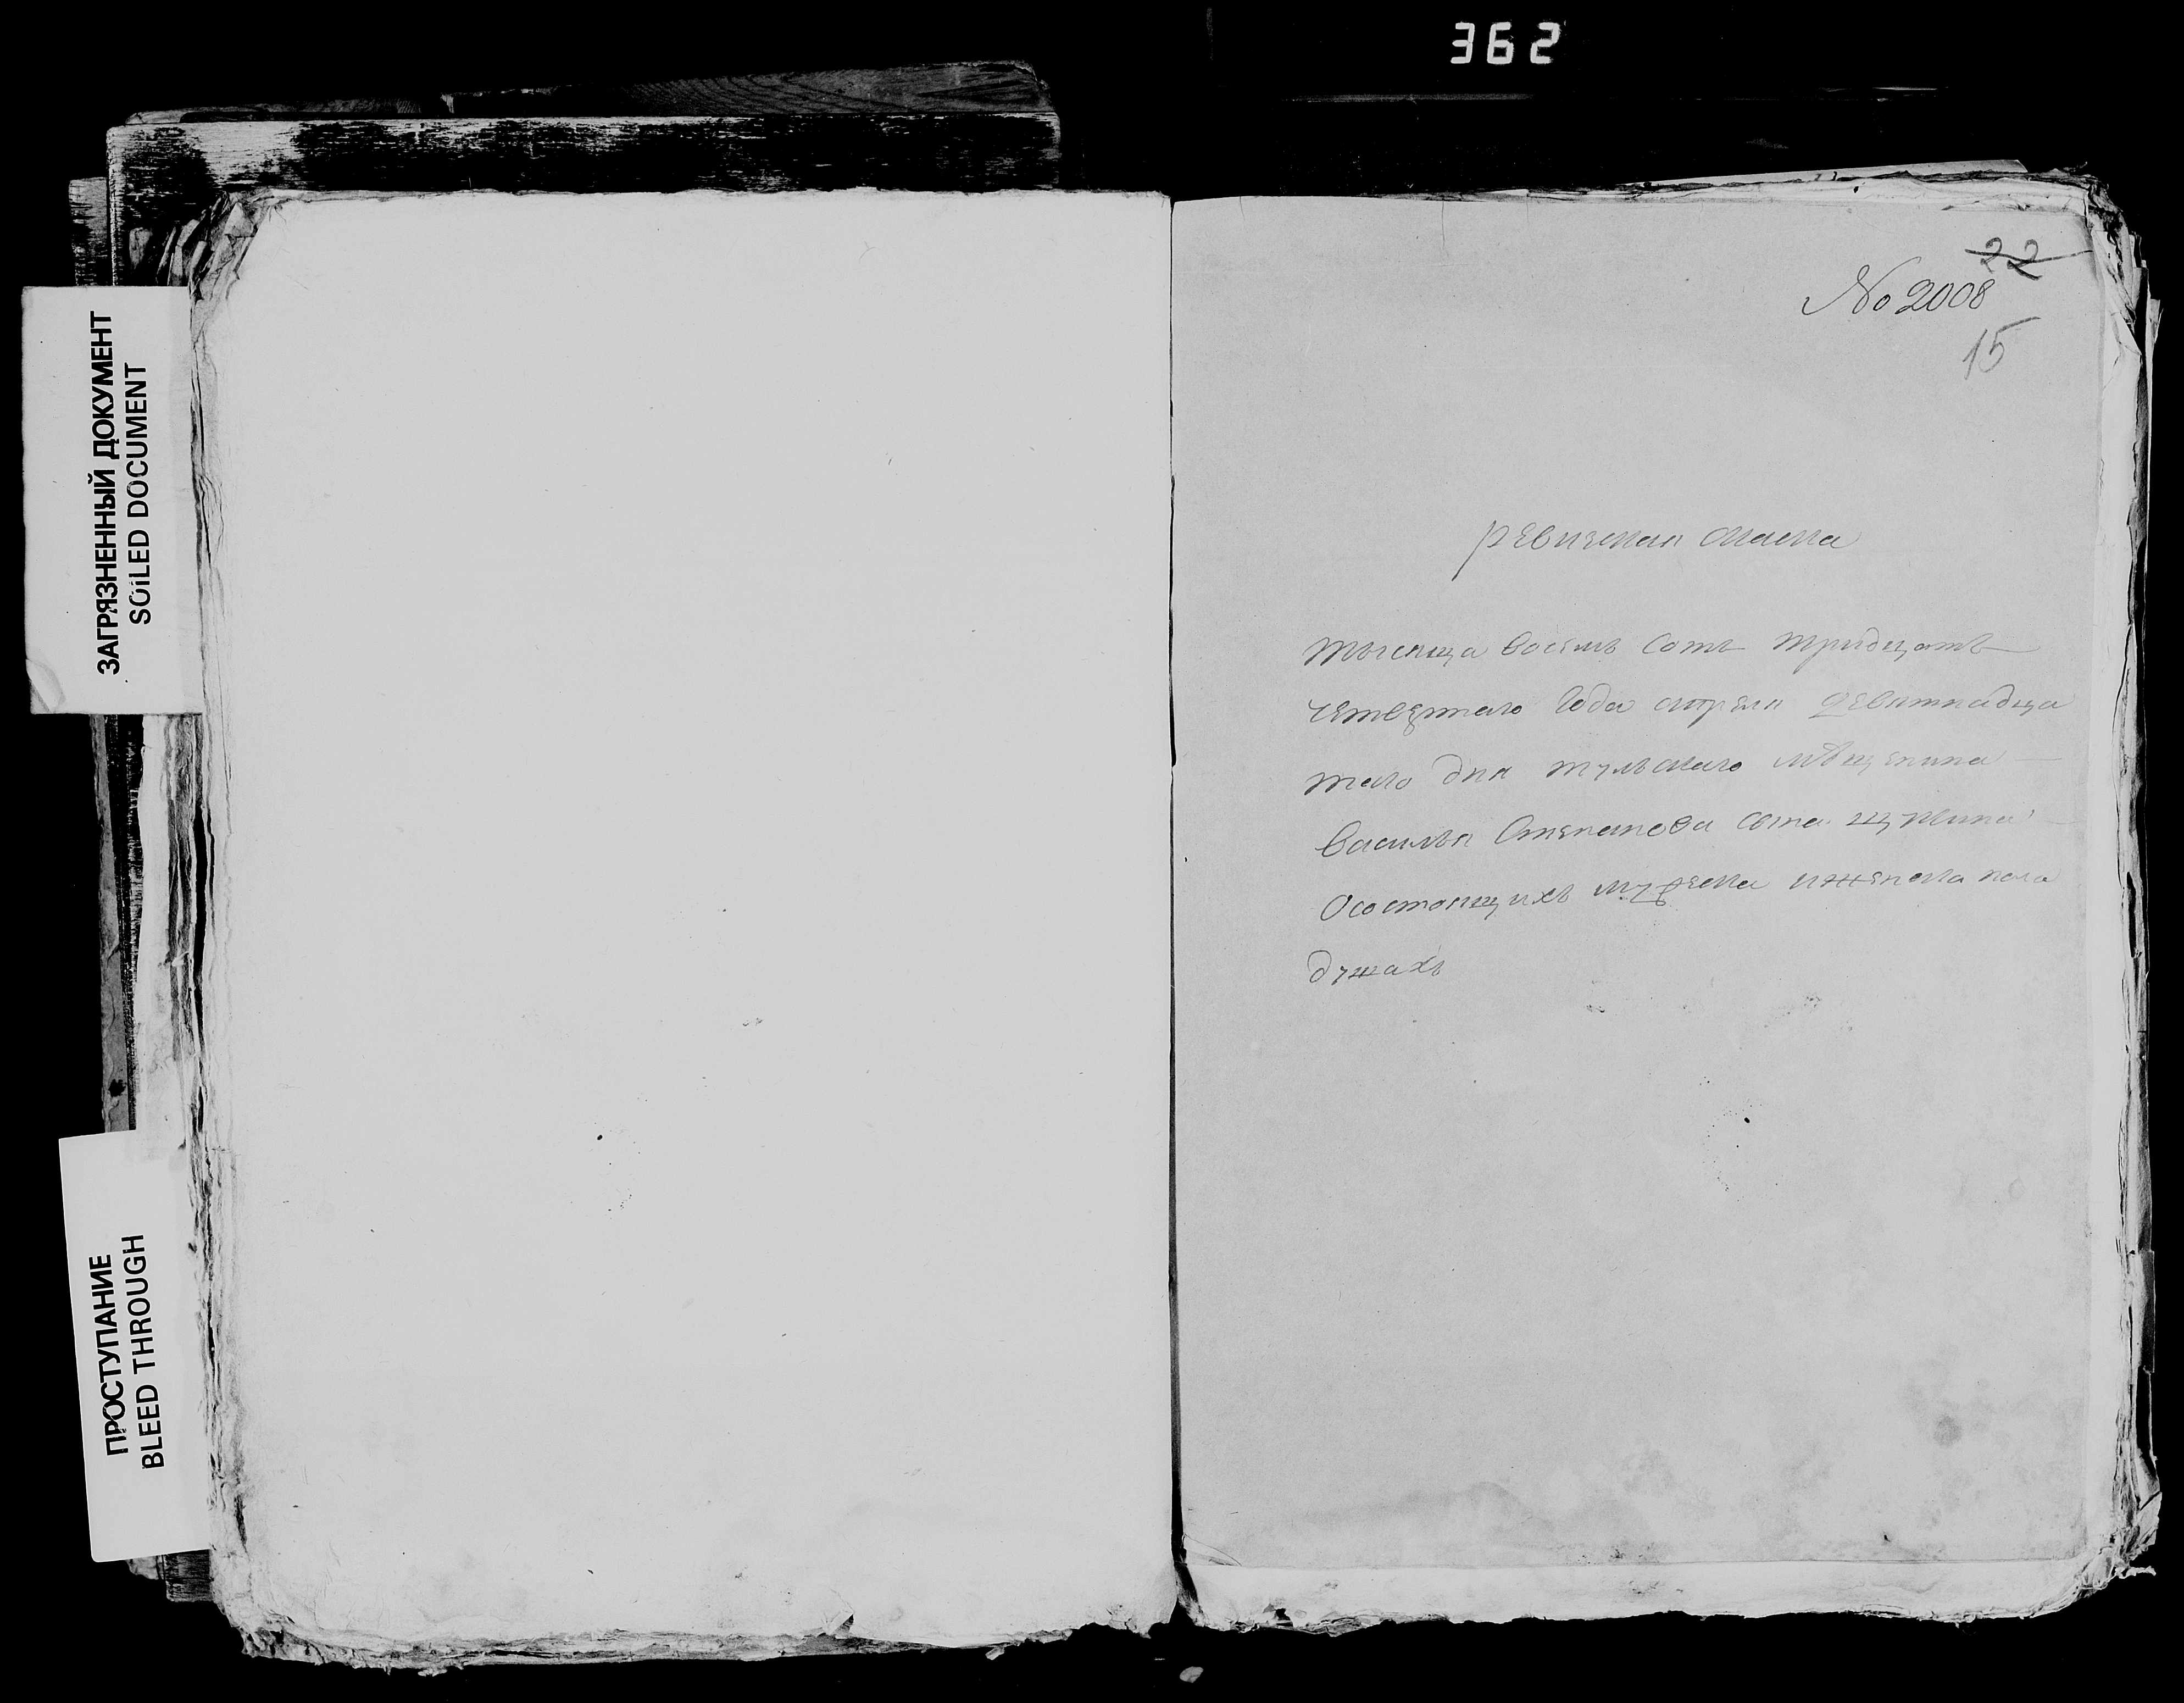 362
ЗАГРЯЗНЕННЫЙ ДОКУМЕНТ
SOILED DOCUMENT
ПРОСТУПАНИЕ
BLEED THROUGH
22
No 2008
15
ревиская скаска
тысяща восемь сотъ тридцать
четвертаго Года апреля Девятнадца
таго дня тульскаго мѣщенина
василья Степанова сына щукина
О состоящихъ мужеска и женска пола
душахъ